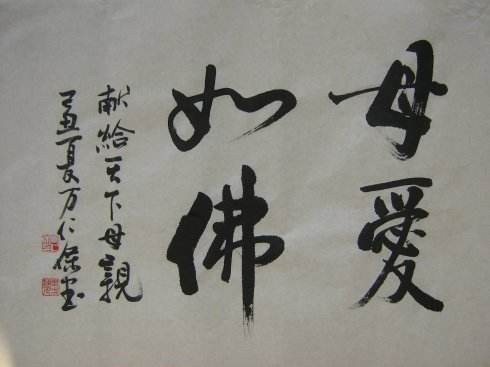 母愛
如佛
献給天下母親
孟夏万仁保书